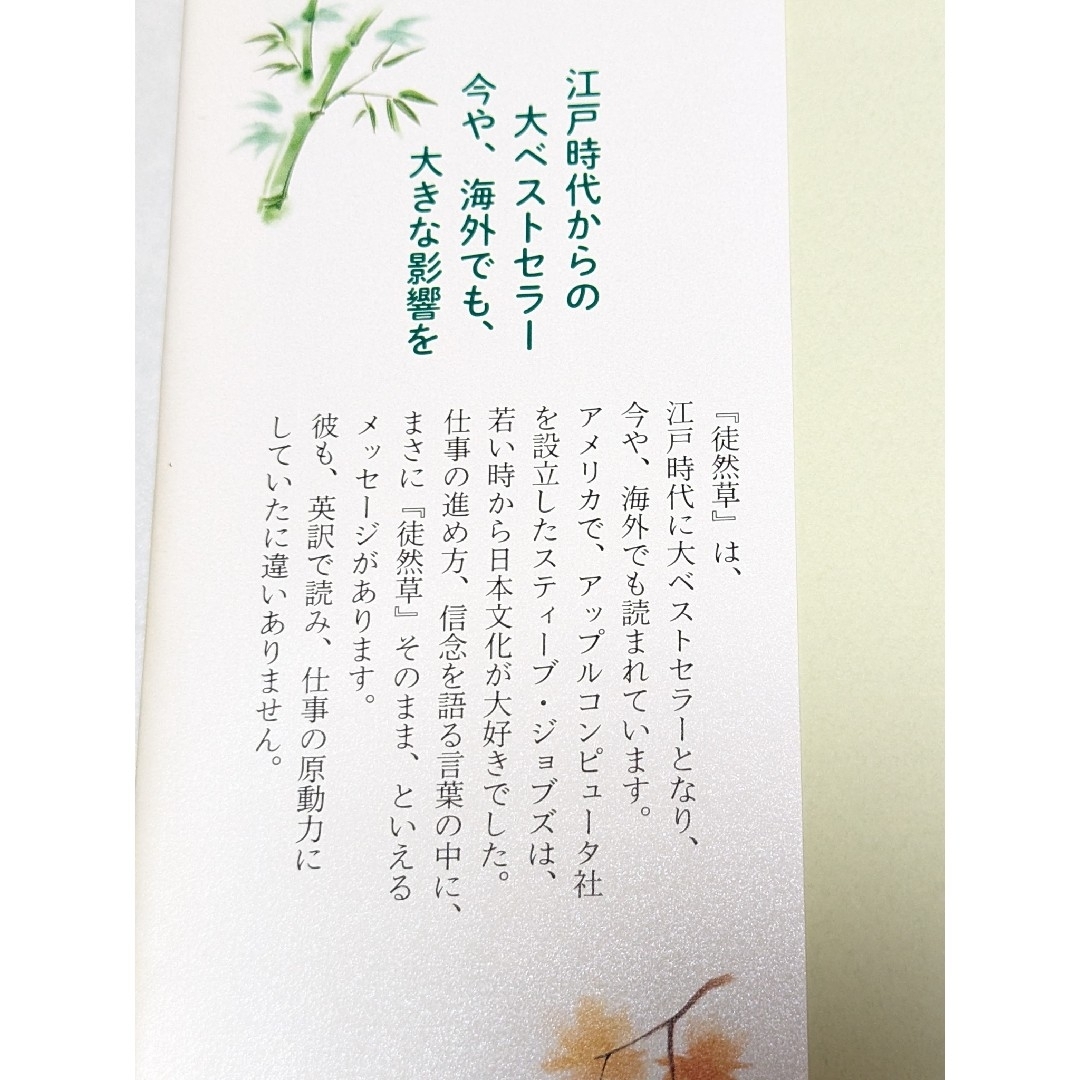 江戸時代からの
大ベストセラー
今や、海外でも、
大きな影響を
『徒然草』は、
江戸時代に大ベストセラーとなり、
今や、海外でも読まれています。
アメリカで、アップルコンピュータ社
を設立したスティーブ・ジョブズは、
若い時から日本文化が大好きでした。
仕事の進め方、信念を語る言葉の中に、
まさに『徒然草』そのまま、といえる
メッセージがあります。
彼も、英訳で読み、仕事の原動力に
していたに違いありません。